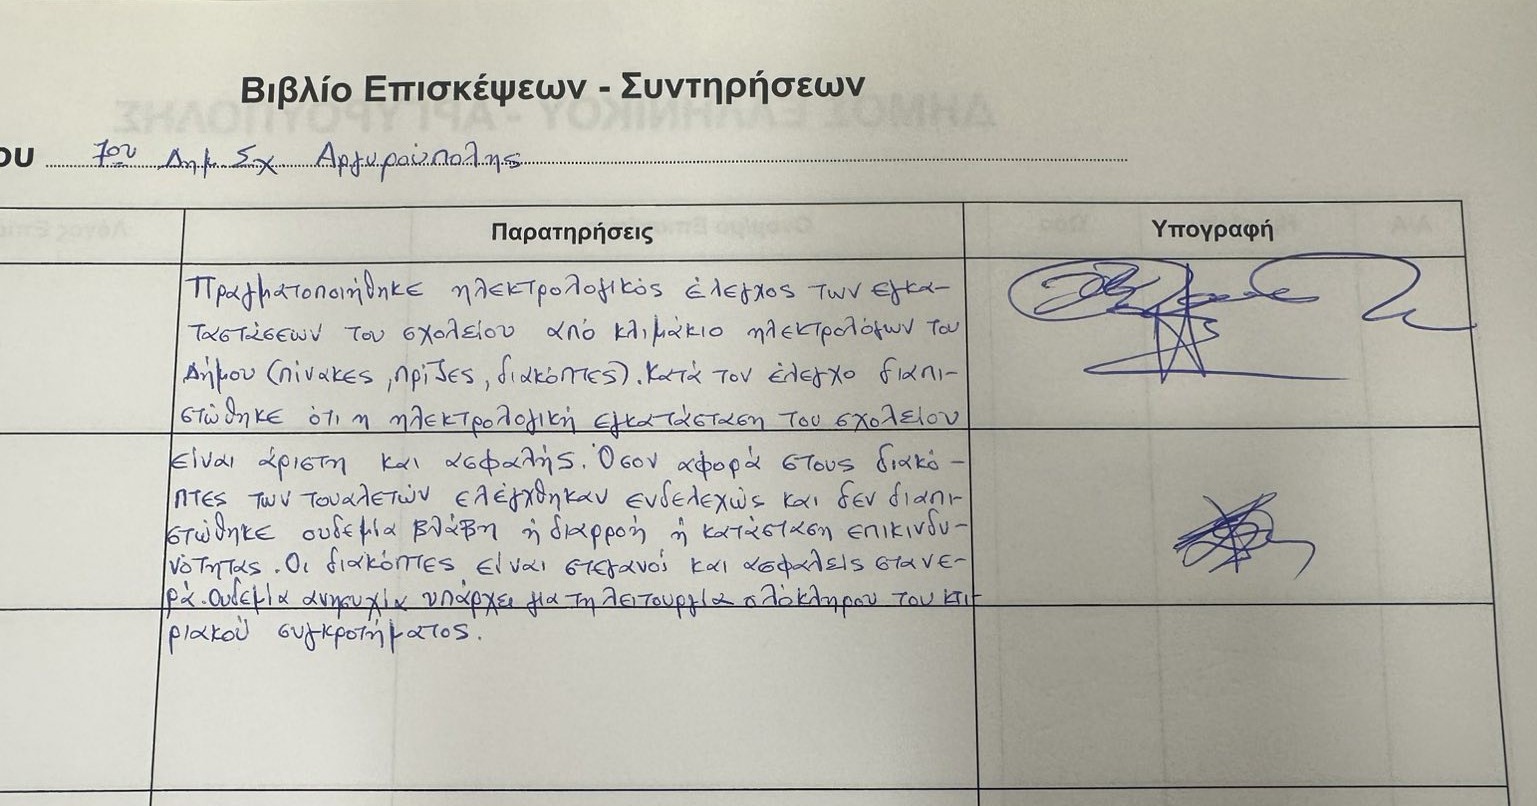 Βιβλίο Επισκέψεων - Συντηρήσεων
ου 7ου Δημ. Σχ. Αργυρούπολης
Παρατηρήσεις
Υπογραφή
Πραγματοποιήθηκε ηλεκτρολογικός έλεγχος των εγκα-
ταστάσεων του σχολείου από κλιμάκιο ηλεκτρολόγων του
Δήμου (πίνακες, πρίζες, διακόπτες). Κατά τον έλεγχο διαπι-
στώθηκε ότι η ηλεκτρολογική εγκατάσταση του σχολείου
είναι άριστη και ασφαλής. Όσον αφορά στους διακό-
πτες των τουαλετών ελέγχθηκαν ενδελεχώς και δεν διαπι-
στώθηκε ουδεμία βλάβη ή διαρροή ή κατάσταση επικινδυ-
νότητας. Οι διακόπτες είναι στεγανοί και ασφαλείς στα νε-
ρά. Ουδεμία ανησυχία υπάρχει για τη λειτουργία ολόκληρου του κτι-
ριακού συγκροτήματος.